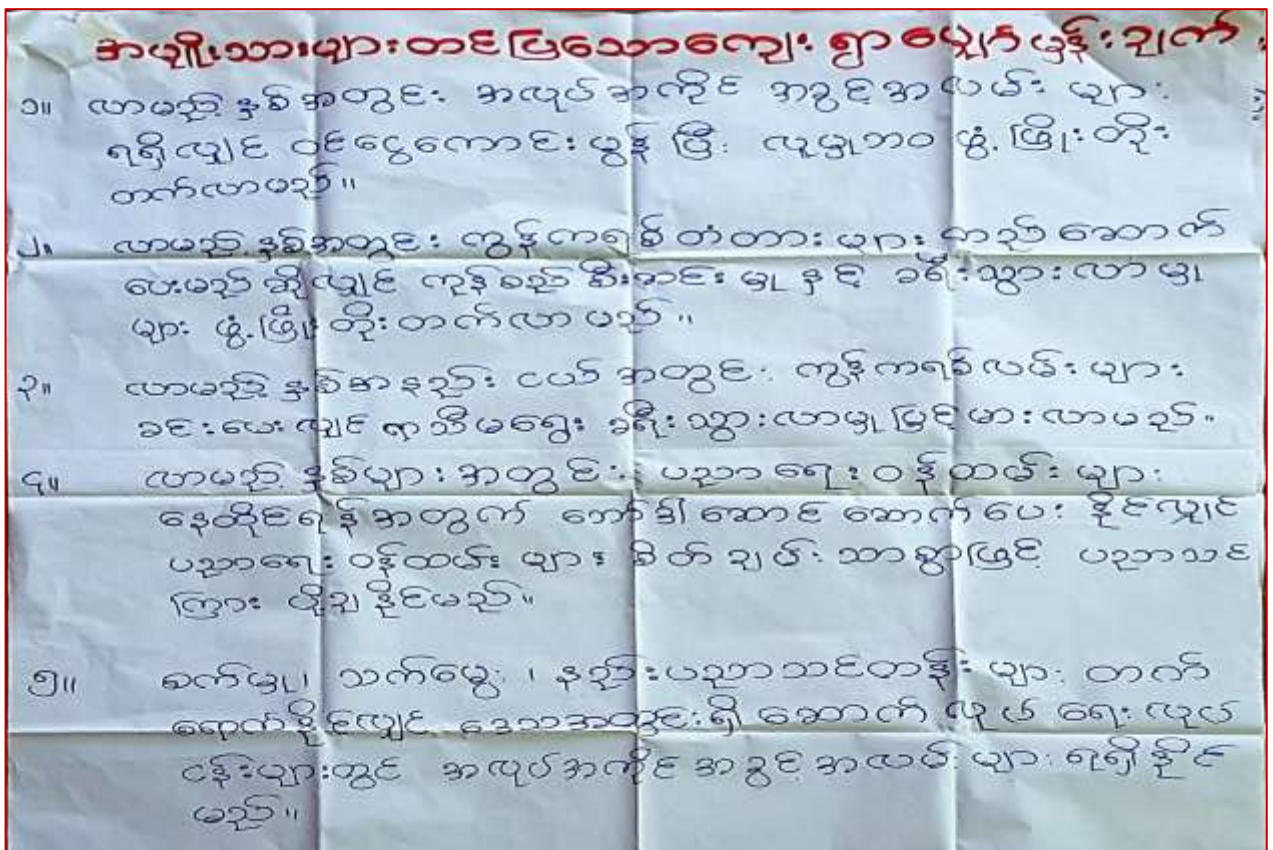 အမျိုးသားများတင်ပြသောကျေးရွာမျှော်မှန်းချက်
၁။ လာမည့်နှစ်အတွင်း အလုပ်အကိုင် အခွင့်အလမ်းများ
ရရှိလျှင် ဝင်ငွေကောင်းမွန်ပြီး လူမှုဘဝ ဖွံ့ဖြိုးတိုး
တက်လာမည်။
၂။ လာမည့်နှစ်အတွင်း ကွန်ကရစ်တံတားများ တည်ဆောက်
ပေးမည်ဆိုလျှင် ကုန်စည်စီးဆင်းမှုနှင့် ခရီးသွားလာမှု
များ ဖွံ့ဖြိုးတိုးတက်လာမည်။
၃။ လာမည့်နှစ်အနည်းငယ်အတွင်း ကွန်ကရစ်လမ်းများ
ခင်းပေးလျှင် ရာသီမရွေး ခရီးသွားလာမှုမြင့်မားလာမည်။
၄။ လာမည့်နှစ်များအတွင်း ပညာရေးဝန်ထမ်းများ
နေထိုင်ရန်အတွက် ဘော်ဒါဆောင် ဆောက်ပေးနိုင်လျှင်
ပညာရေးဝန်ထမ်းများ စိတ်ချမ်းသာစွာဖြင့် ပညာသင်
ကြားပို့ချနိုင်မည်။
၅။ စက်မှု၊ သက်မွေး၊ နည်းပညာသင်တန်းများ တက်
ရောက်နိုင်လျှင် ဒေသအတွင်းရှိ ဆောက်လုပ်ရေးလုပ်
ငန်းများတွင် အလုပ်အကိုင်အခွင့်အလမ်းများ ရရှိနိုင်
မည်။